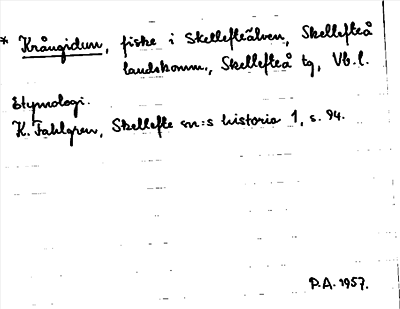 * Krångidum, fiske i Skellefteälven, Skellefteå
landskomm., Skellefteå tg, Vb. l.
Etymologi.
K. Fahlgren, Skellefte sn:s historia 1, s. 94.
P.A. 1957.